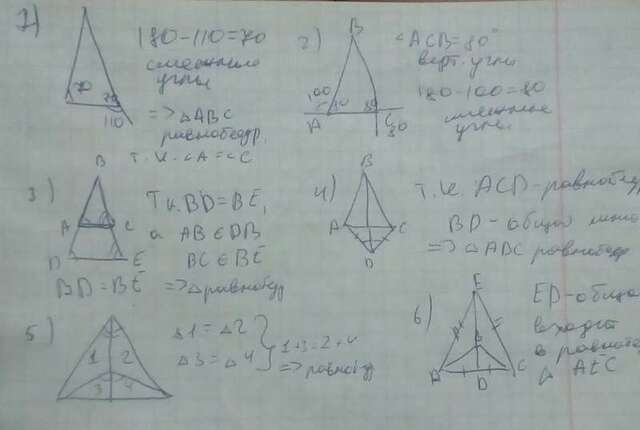 1)
70
70
110
180-110=70
смежные
углы
=> △ABC
равнобедр.
т.к. ∠A=∠C
2)
B
100
80
80
A
C
80
∠ACB=80°
верт. углы
180-100=80
смежные
углы
3)
B
A
C
D
E
Т.к. BD=BE,
а AB∈DB
BC∈BE
BD=BE => △равнобедр
4)
B
A
C
D
т.к. ACD-равнобедр
BD-общая
=> △ABC равнобедр
5)
1
2
3
4
△1=△2
△3=△4
1+3=2+4
=> равнобедр
6)
E
B
A
D
C
ED-общая
входит
в равнобед
△ AEC